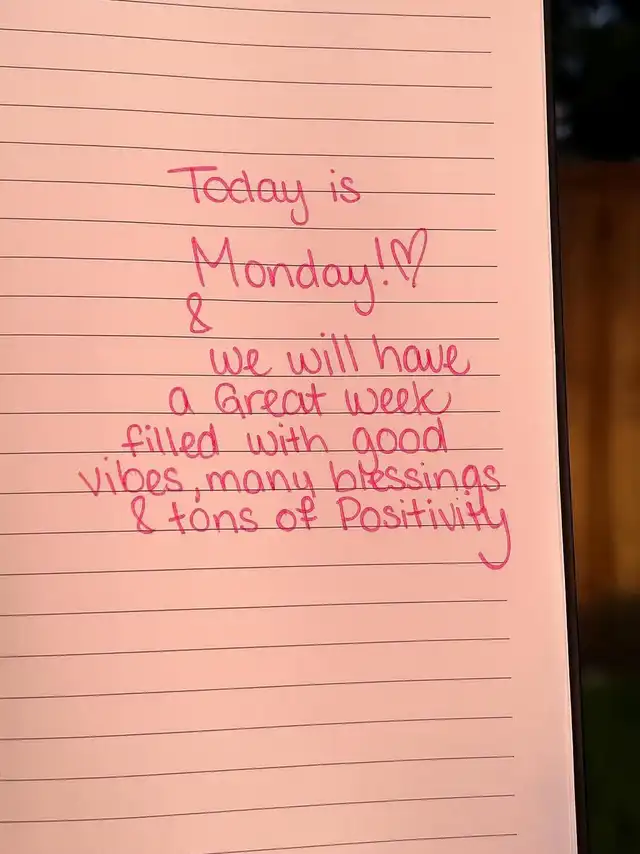 Today is
Monday!♡
&
we will have
a Great week
filled with good
vibes, many blessings
& tons of Positivity